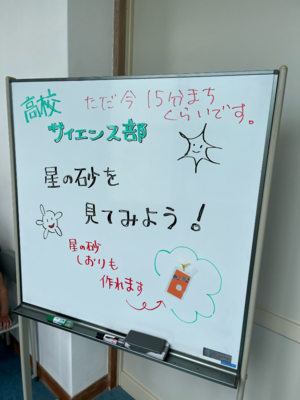 高校
サイエンス部
ただ今 15分まち
くらいです。
星の砂を
見てみよう!
星の砂
しおりも
作れます